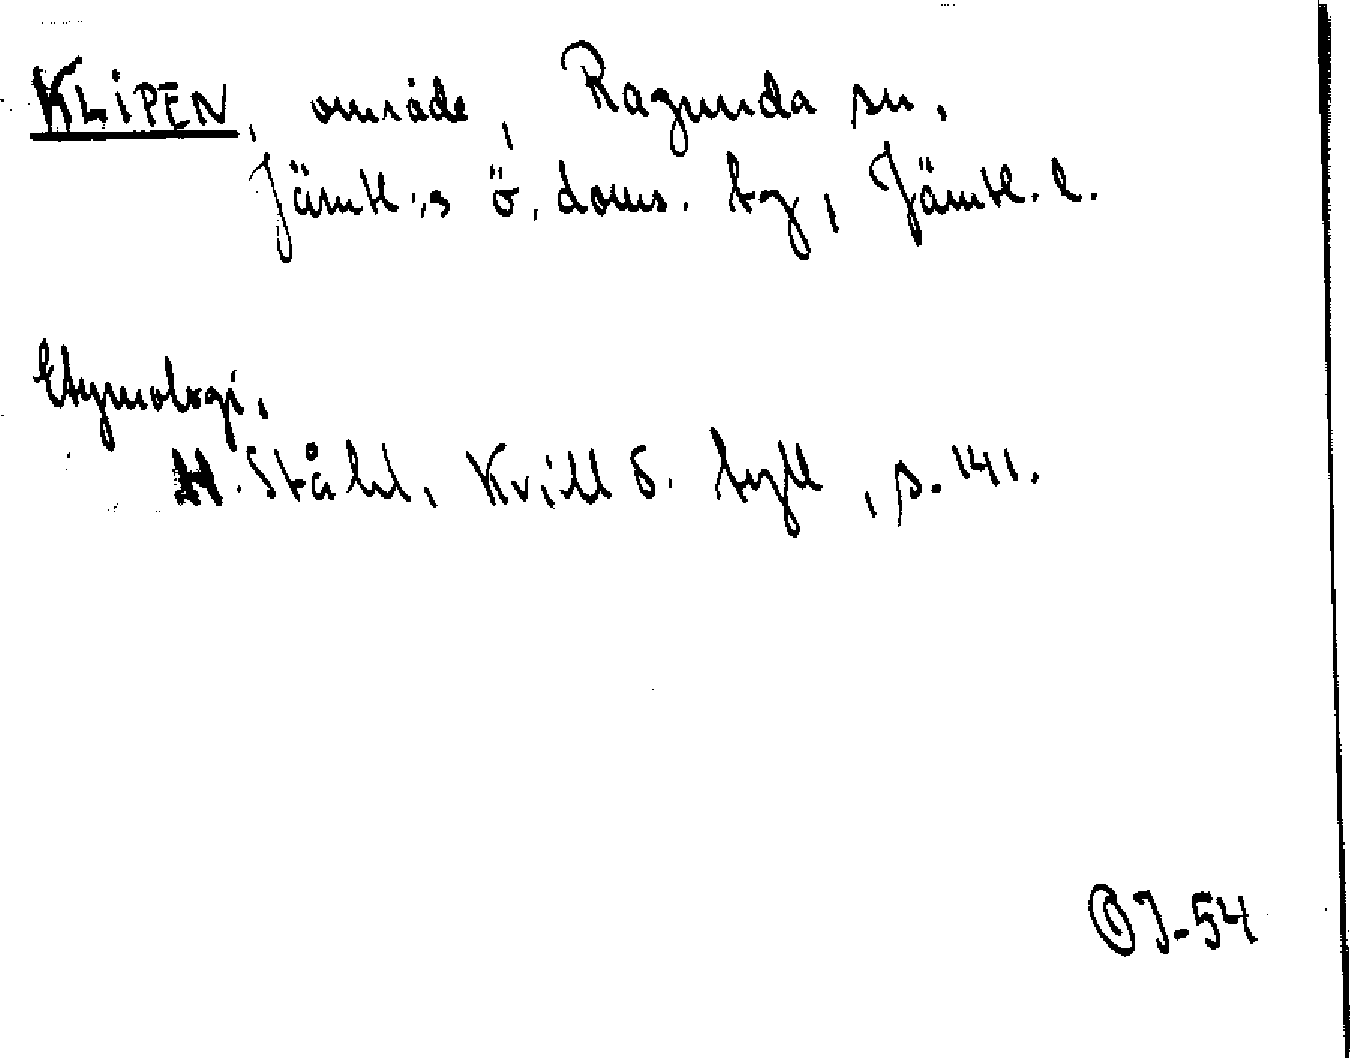 KLIPEN, område, Ragunda sn,
Jämtl:s ö. doms. bg, Jämtl. l.
Etymologi.
H. Ståhl, Kvill o. bygd, s. 141.
OJ-54